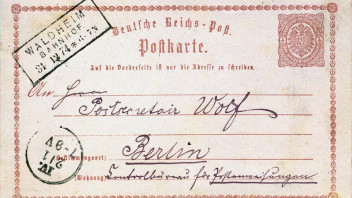 WALDHEIM
BAHNHOF
31 1 74 * 6-7 N
Deutsche Reichs-Post.
Postkarte.
Auf die Vorderseite ist nur die Adresse zu schreiben.
An Herrn
Postsecretair Wolf
Berlin
Bestimmungsort:
Wohnung:
Controlbüreau für Postanweisungen